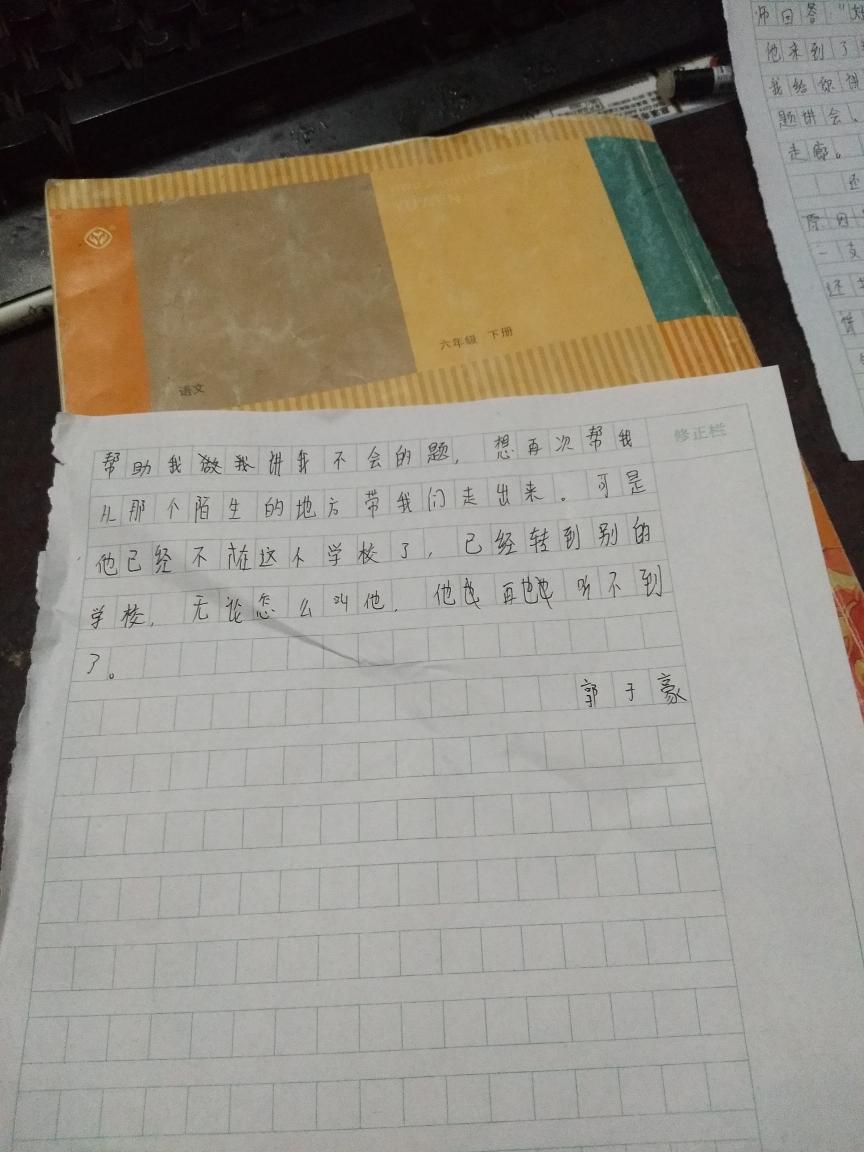 师回答："
他来到了
我给你讲
题讲会。
走廊。
还
原因
一支
还
语文
六年级 下册
YUWEN
修正栏
帮助我做我讲我不会的题，想再次帮我
从那个陌生的地方带我们走出来。可是
他已经不在这个学校了，已经转到别的
学校，无论怎么叫他，他再也听不到
了。
郭于豪